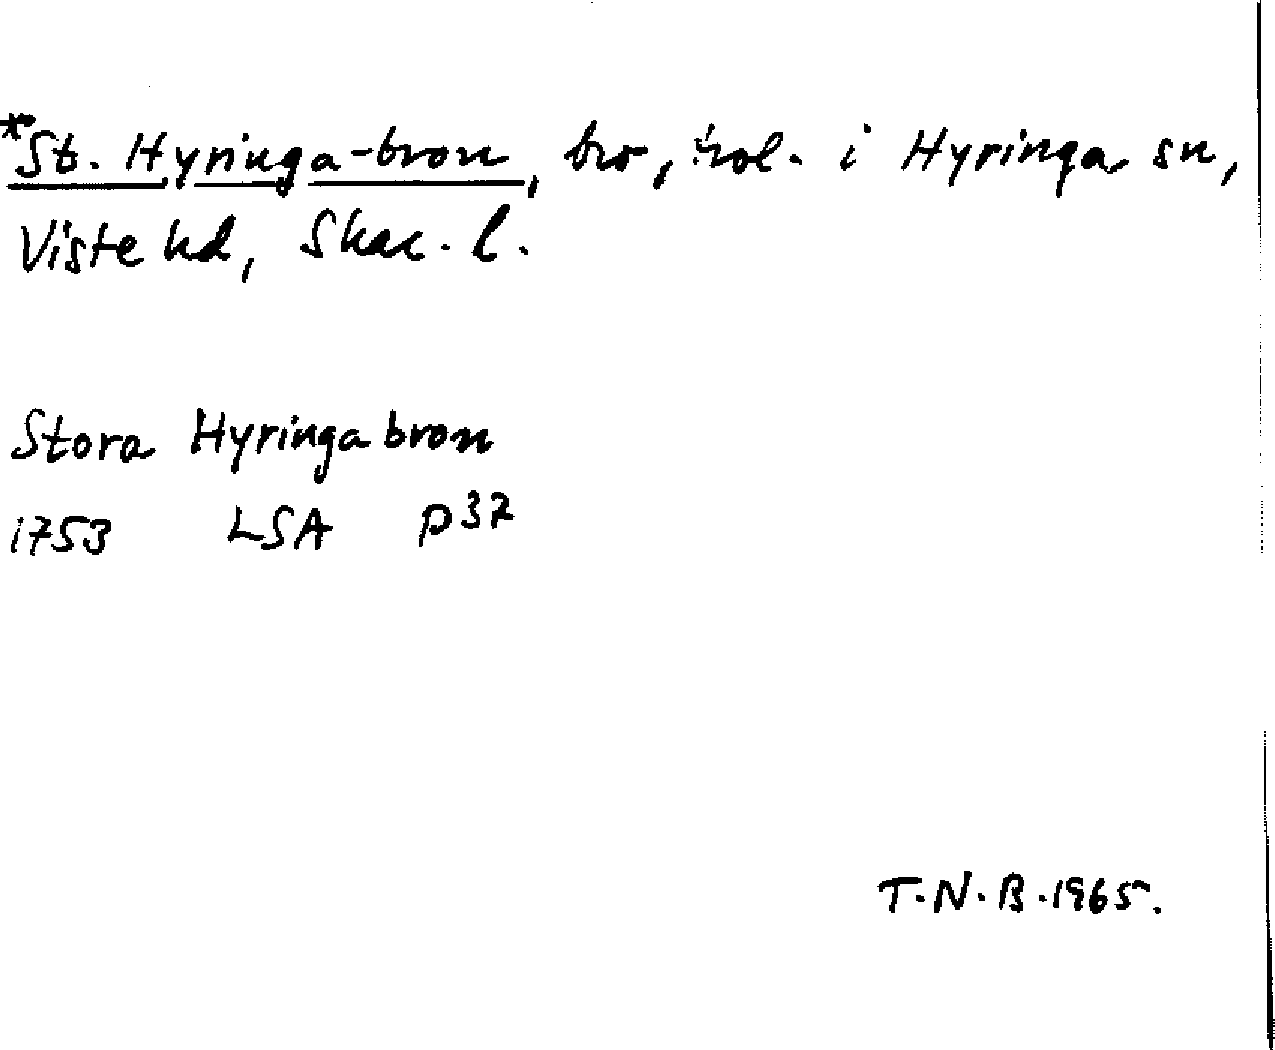 *St. Hyringa-bron, bro, trol. i Hyringa sn,
Viste hd, Skar. l.
Stora Hyringabron
1753 LSA P37
T.N.B.1965.